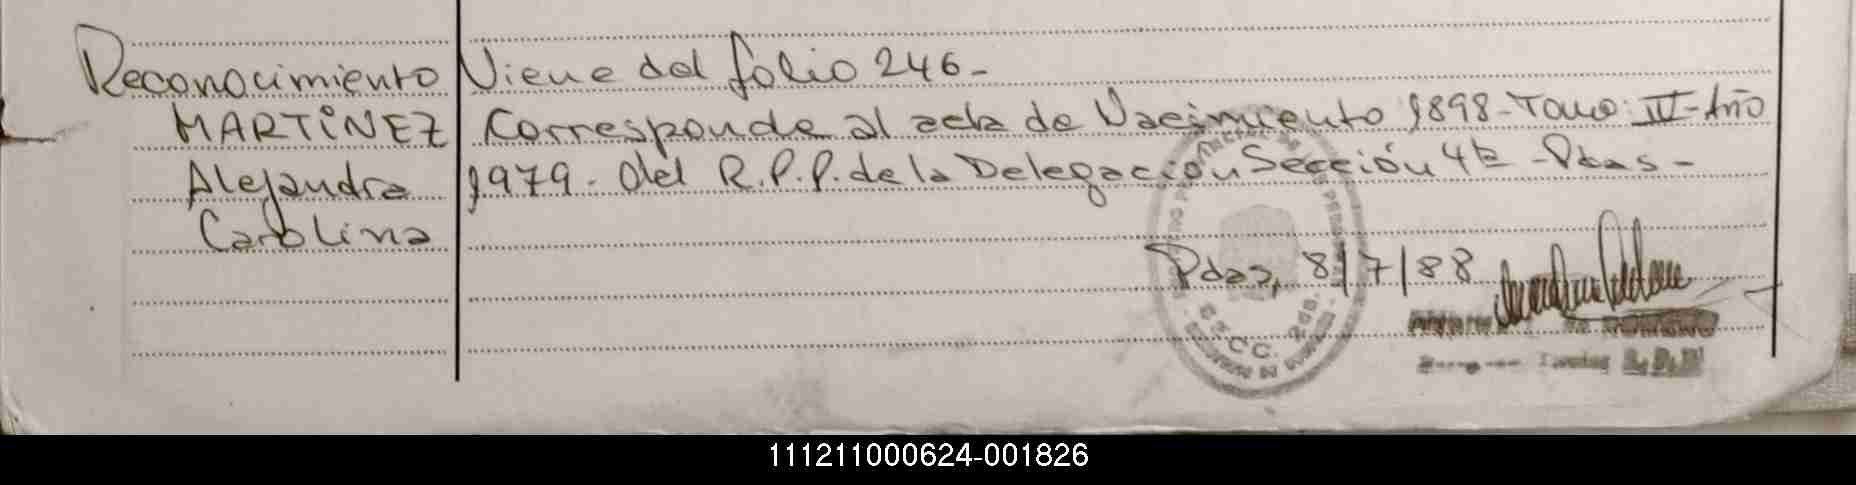 Reconocimiento Viene del folio 246-
MARTINEZ Corresponde al acta de Nacimiento 1898-Tomo: IV-Año
Alejandra 1979. del R.P.P. de la Delegación Sección 4ta -Pdas-
Carolina
Pdas, 8/7/88
CC. Pds.
111211000624-001826